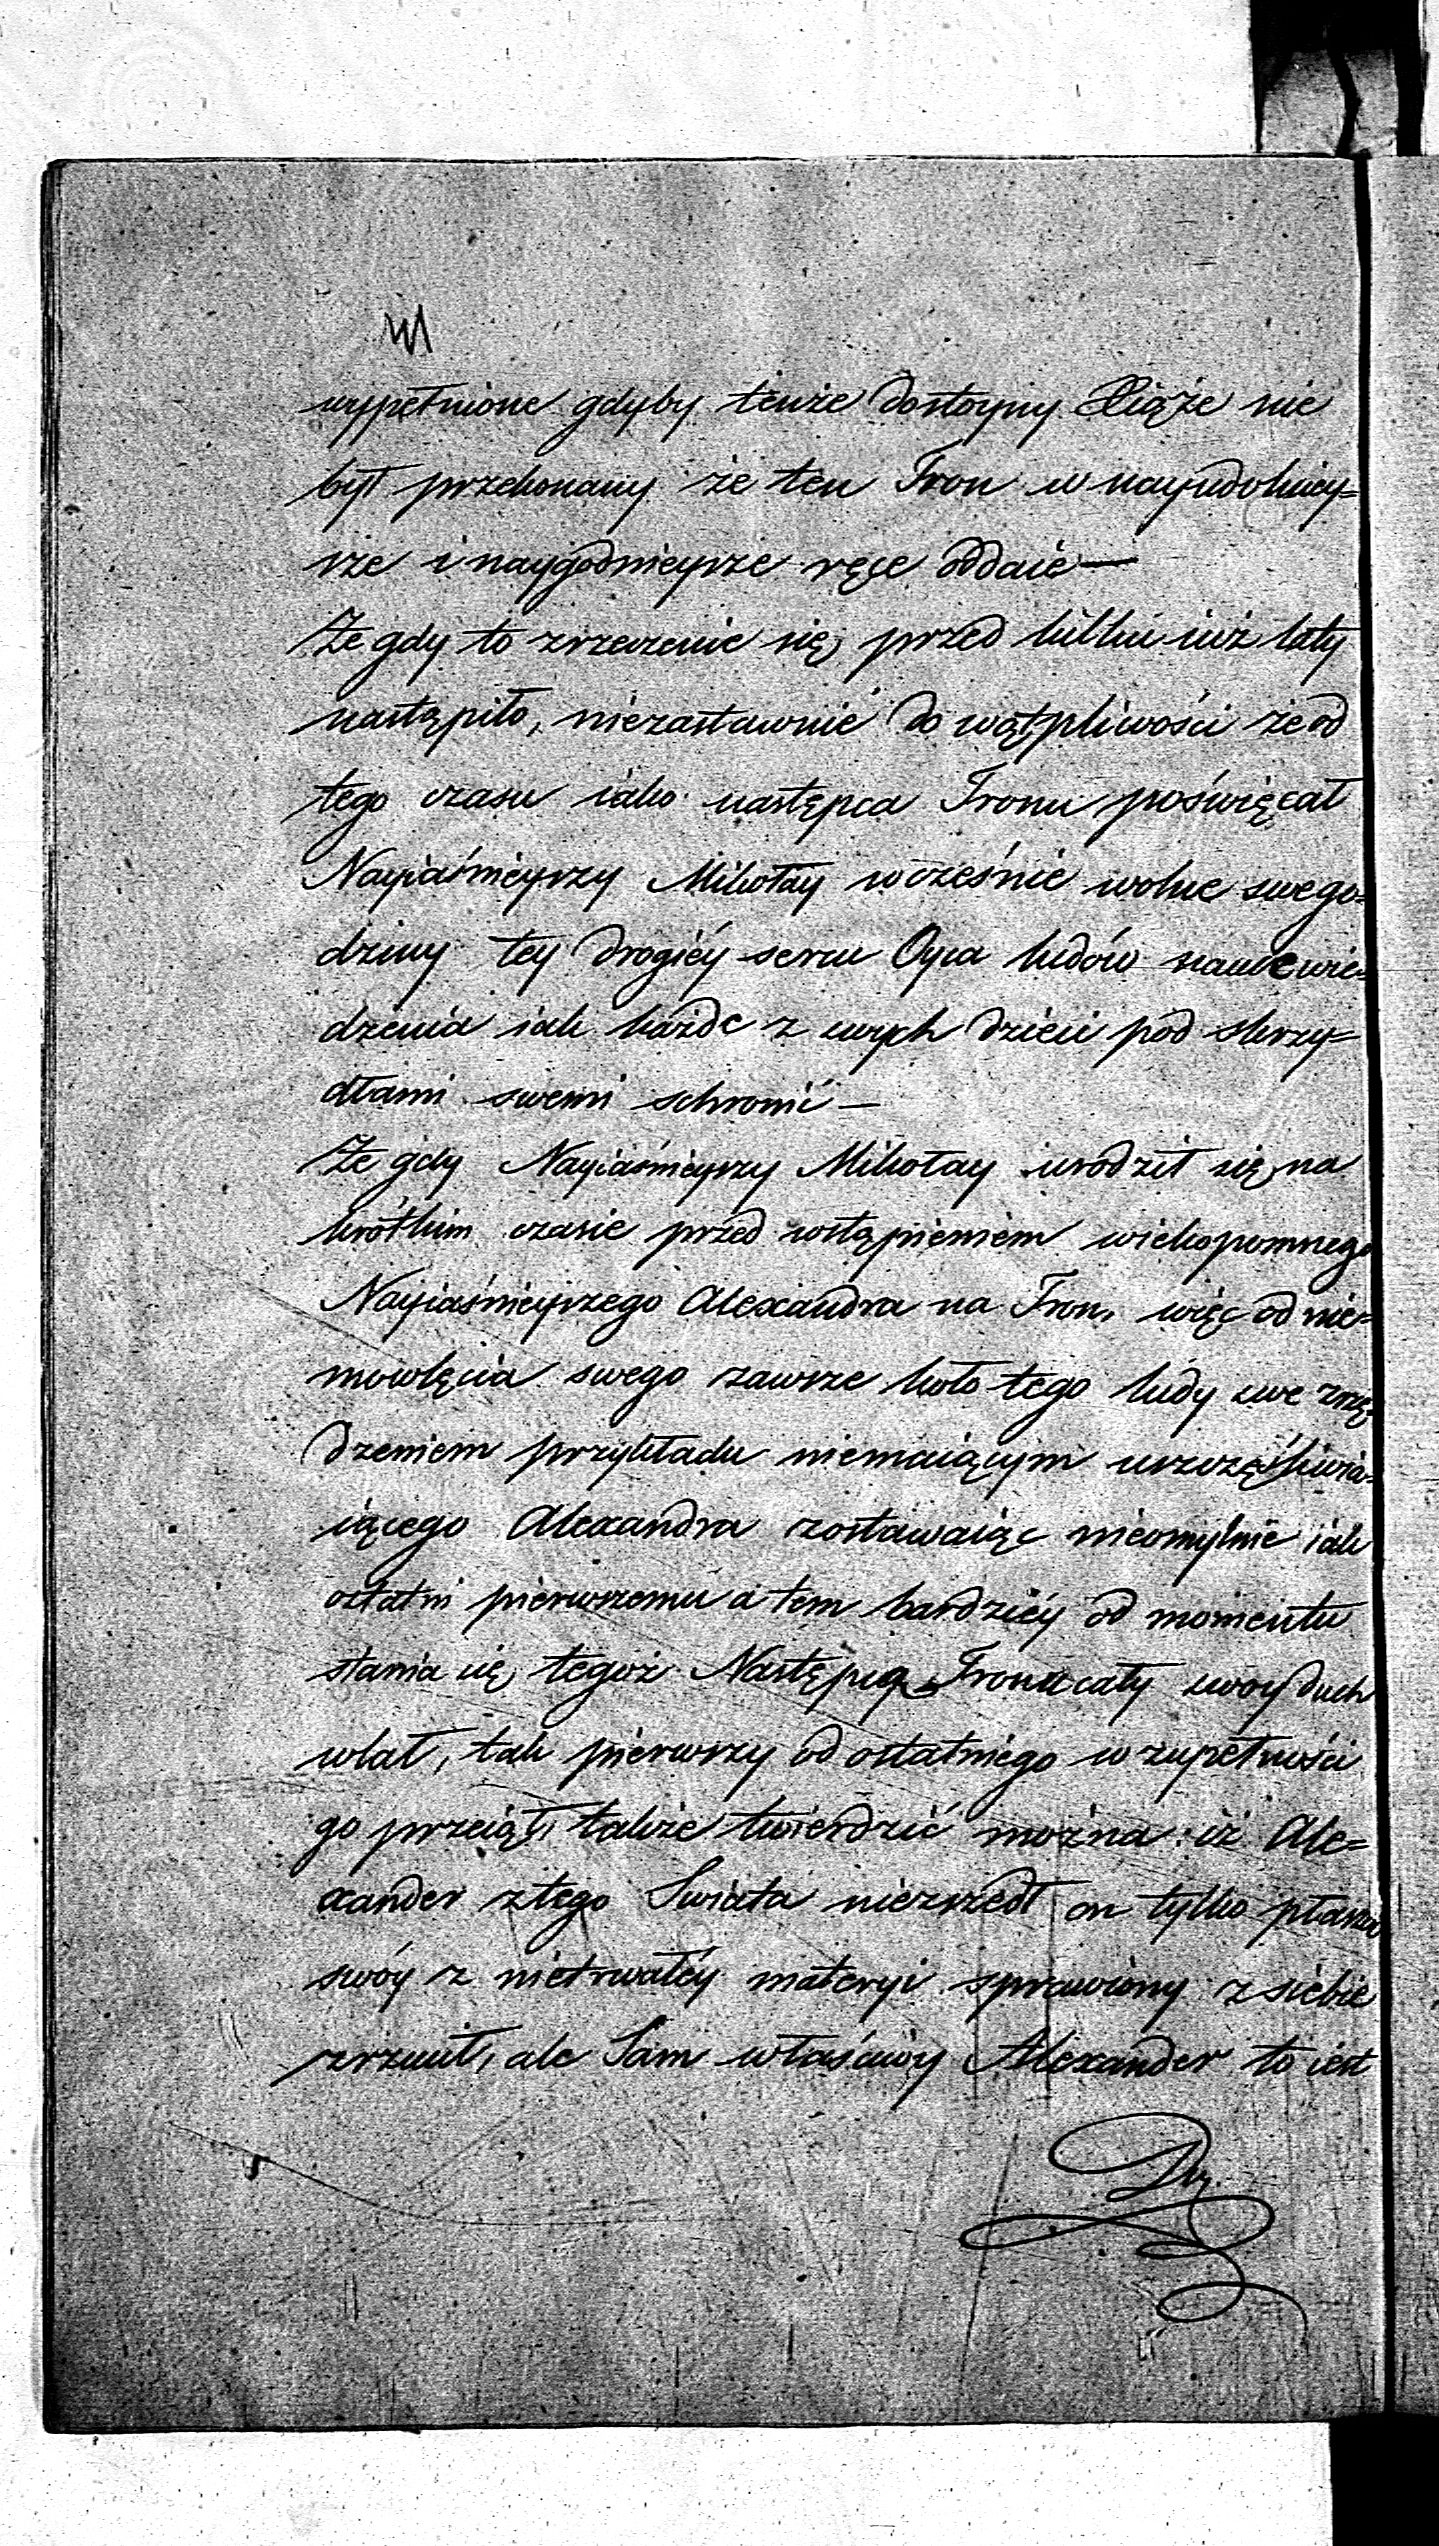 wypełnione gdyby tenże dostoyny Xiąże nie
był przekonany że ten Tron w nayudolniey=
sze i naygodnieysze ręce oddaie —
Że gdy to zrzeczenie się przed kilku iuż laty
nastąpiło, niezastawnie do wątpliwości że od
tego czasu iako następca Tronu poświęcał
Nayiaśnieyszy Mikołay wcześnie wolne swe go=
dziny tey drogiéy sercu Oyca ludów nauce wie=
dzenia iak każde z swych dzieci pod skrzy=
dłami swemi schronić —
Że gdy Nayiaśnieyszy Mikołay urodził się na
krótkim czasie przed wstąpieniem wiekopomnego
Nayiaśnieyszego Alexandra na Tron, więc od nie=
mowlęcia swego zawsze koło tego ludy swe rzą=
dzeniem przykładu niemaiącym uszczęśliwia=
iącego Alexandra zostawaiąc nieomylnie iak
ostatni pierwszemu a tem bardziéy od momentu
stania się tegoż Następcą Tronu cały swoy duch
wlał, tak pierwszy od ostatniego w zupełności
go przeiął, także twierdzić można iż Ale=
xander z tego Swiata niezszedł on tylko płaszcz
swóy z nietrwałéy materyi sprawiony z siebie
zrzucił, ale Sam właściwy Alexander to iest